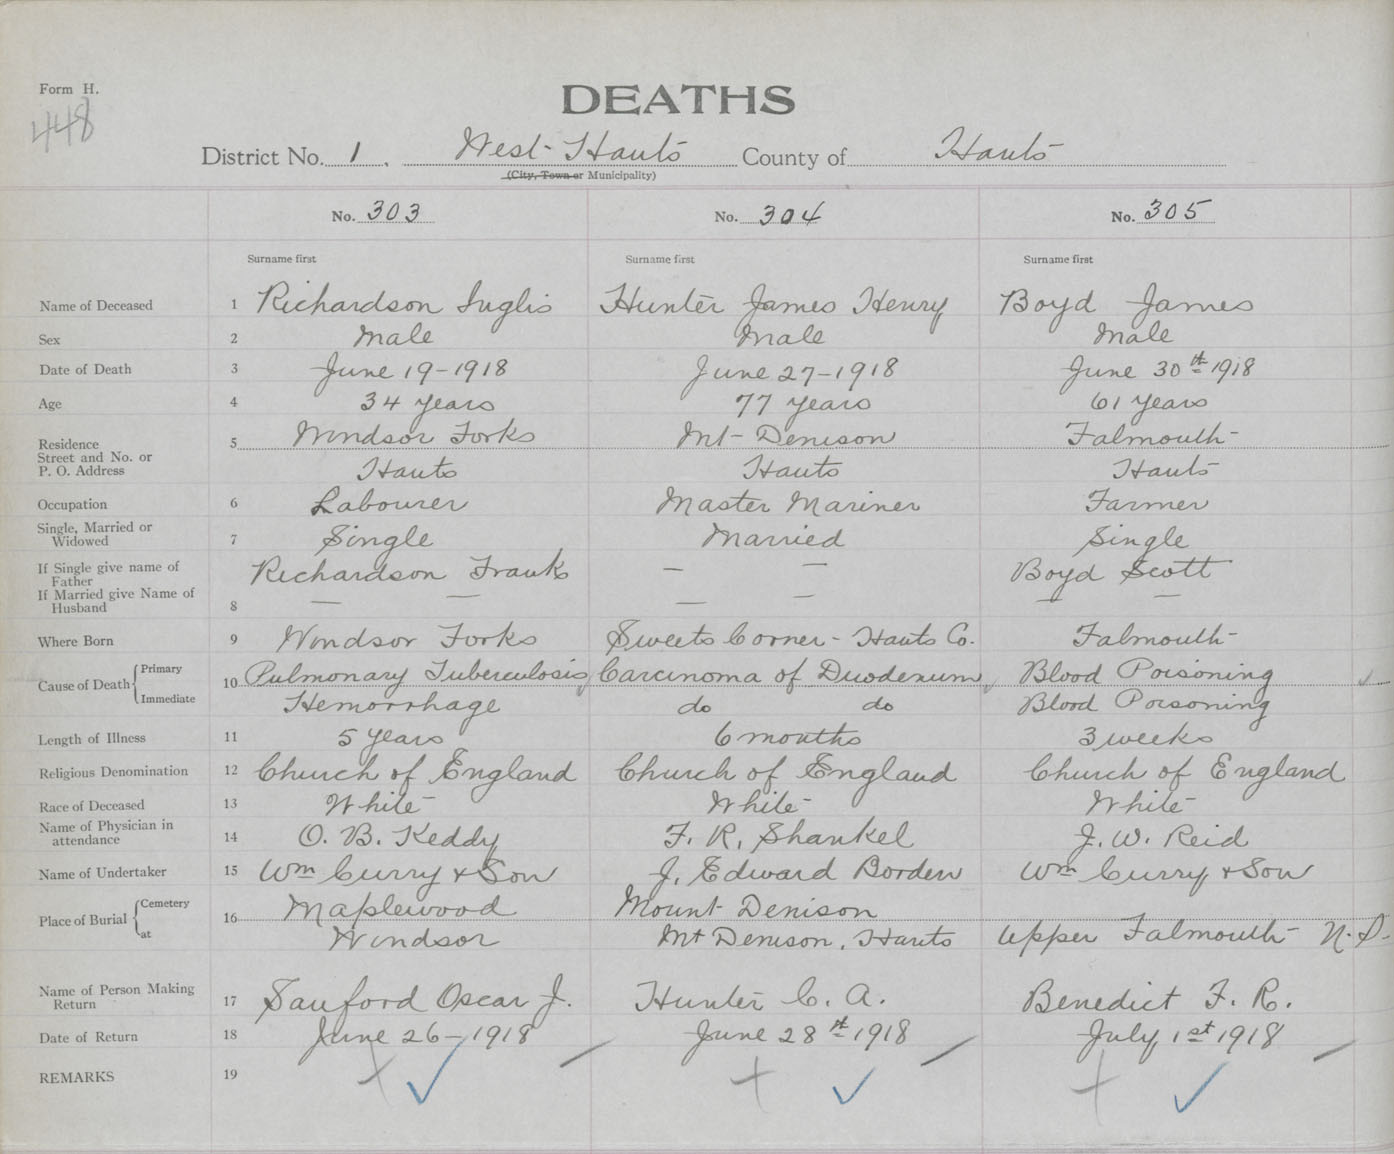 Form H.
448
DEATHS
District No. 1, West Hants County of Hants
(City, Town or Municipality)
No. 303 No. 304 No. 305
Surname first Surname first Surname first
Name of Deceased 1 Richardson Inglis Hunter James Henry Boyd James
Sex 2 Male Male Male
Date of Death 3 June 19-1918 June 27-1918 June 30th 1918
Age 4 34 years 77 years 61 years
Residence 5 Windsor Forks Mt Denison Falmouth
Street and No. or
P. O. Address Hants Hants Hants
Occupation 6 Labourer Master Mariner Farmer
Single, Married or
Widowed 7 Single Married Single
If Single give name of
Father Richardson Frank — — Boyd Scott
If Married give Name of
Husband 8 — — — — — —
Where Born 9 Windsor Forks Sweets Corner - Hants Co. Falmouth
Cause of Death Primary 10 Pulmonary Tuberculosis Carcinoma of Duodenum Blood Poisoning
Immediate Hemorrhage do do Blood Poisoning
Length of Illness 11 5 years 6 months 3 weeks
Religious Denomination 12 Church of England Church of England Church of England
Race of Deceased 13 White White White
Name of Physician in
attendance 14 O. B. Keddy F. R. Shankel J. W. Reid
Name of Undertaker 15 Wm Curry & Son J. Edward Borden Wm Curry & Son
Place of Burial Cemetery 16 Maplewood Mount Denison
at Windsor Mt Denison, Hants Upper Falmouth N.S.
Name of Person Making
Return 17 Sanford Oscar J. Hunter C. A. Benedict F. R.
Date of Return 18 June 26-1918 June 28th 1918 July 1st 1918
REMARKS 19